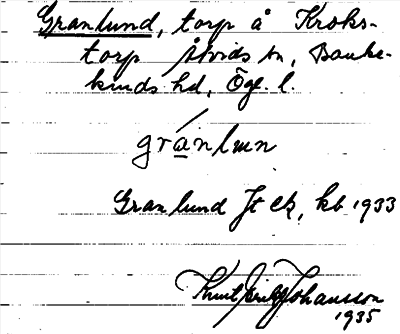 Granlund, torp å Kroks-
torp Åtvids sn, Banke-
kinds hd, Ögl. l.
gránlun
Granlund Jt ek, kb 1933
Knut Erik Johansson
1935